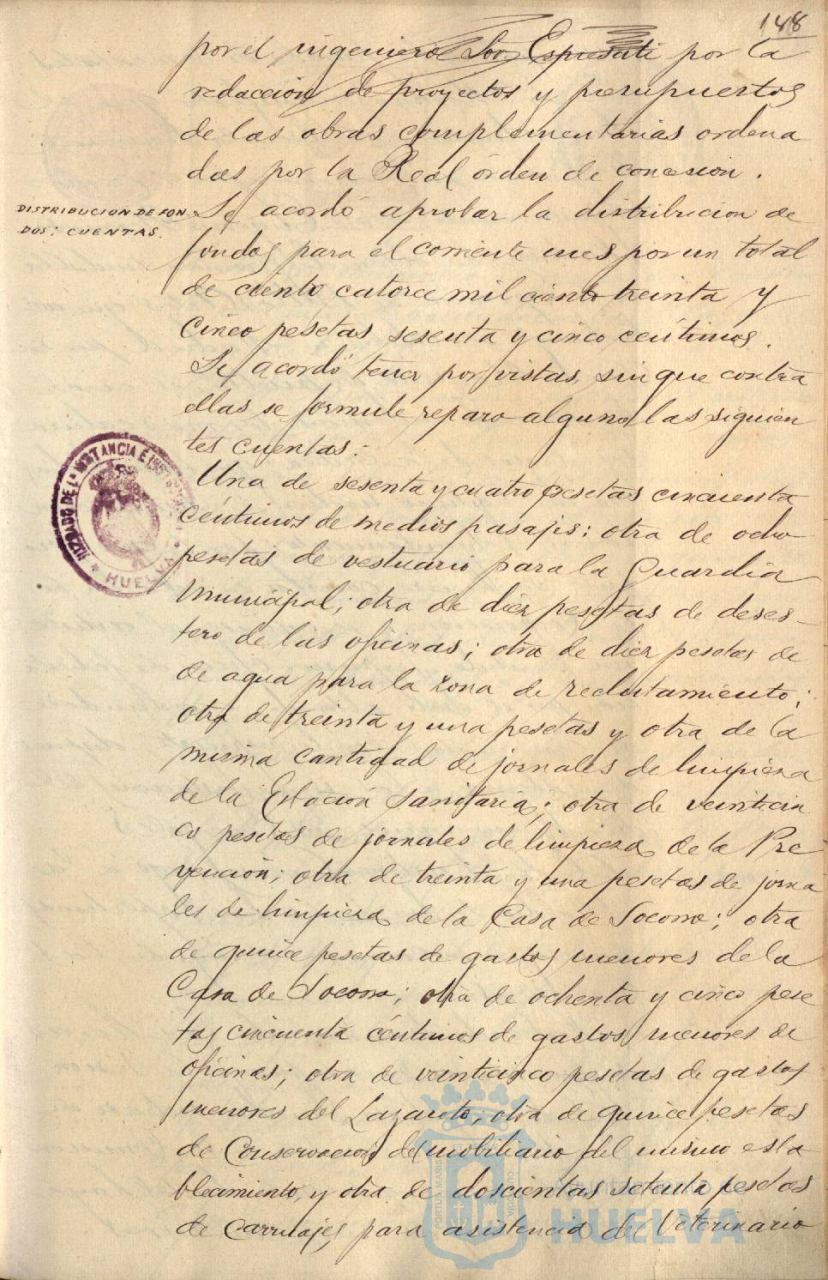 148
por el ingeniero Sor. por la
redacción de proyectos y presupuestos
de las obras complementarias ordena
das por la Real órden de concesion.
DISTRIBUCION DE FON
DOS: CUENTAS.
Se acordó aprobar la distribucion de
fondos para el corriente mes por un total
de ciento catorce mil ciento treinta y
cinco pesetas sesenta y cinco centimos.
Se acordó tener por vistas, sin que contra
ellas se formule reparo alguno las siguien
tes cuentas:
Una de sesenta y cuatro pesetas cincuenta
céntimos de medios pasajes; otra de ocho
pesetas de vestuario para la Guardia
Municipal; otra de diez pesetas de deses-
tero de las oficinas; otra de diez pesetas de
de agua para la zona de reclutamiento;
otra de treinta y una pesetas y otra de la
misma cantidad de jornales de limpieza
de la Estación Sanitaria; otra de veinticin
co pesetas de jornales de limpieza de la Pre
vención; otra de treinta y una pesetas de jorna
les de limpieza de la Casa de Socorro; otra
de quince pesetas de gastos menores de la
Casa de Socorro; otra de ochenta y cinco pese
tas cincuenta céntimos de gastos menores de
oficinas; otra de veinticinco pesetas de gastos
menores del Lazareto; otra de quince pesetas
de Conservacion de mobiliario del mismo esta
blecimiento, y otra de doscientas setenta pesetas
de carruajes para asistencia del Veterinario
JUZGADO DE 1ª INSTANCIA É
HUELVA
PORTUS MARIS
Ayuntamiento de
HUELVA